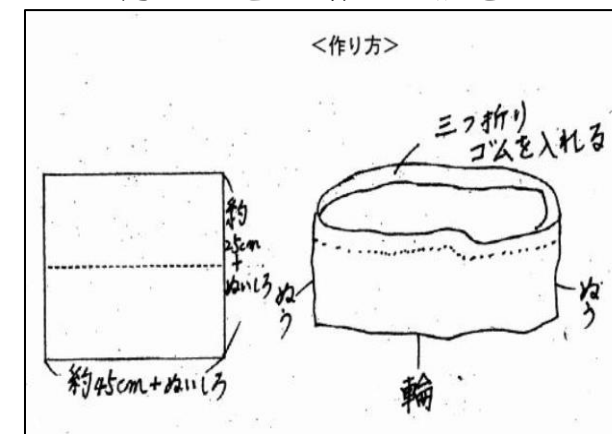 <作り方>
三つ折り
ゴムを入れる
約
25cm
+
ぬいしろ
ぬう
ぬう
約45cm+ぬいしろ
輪